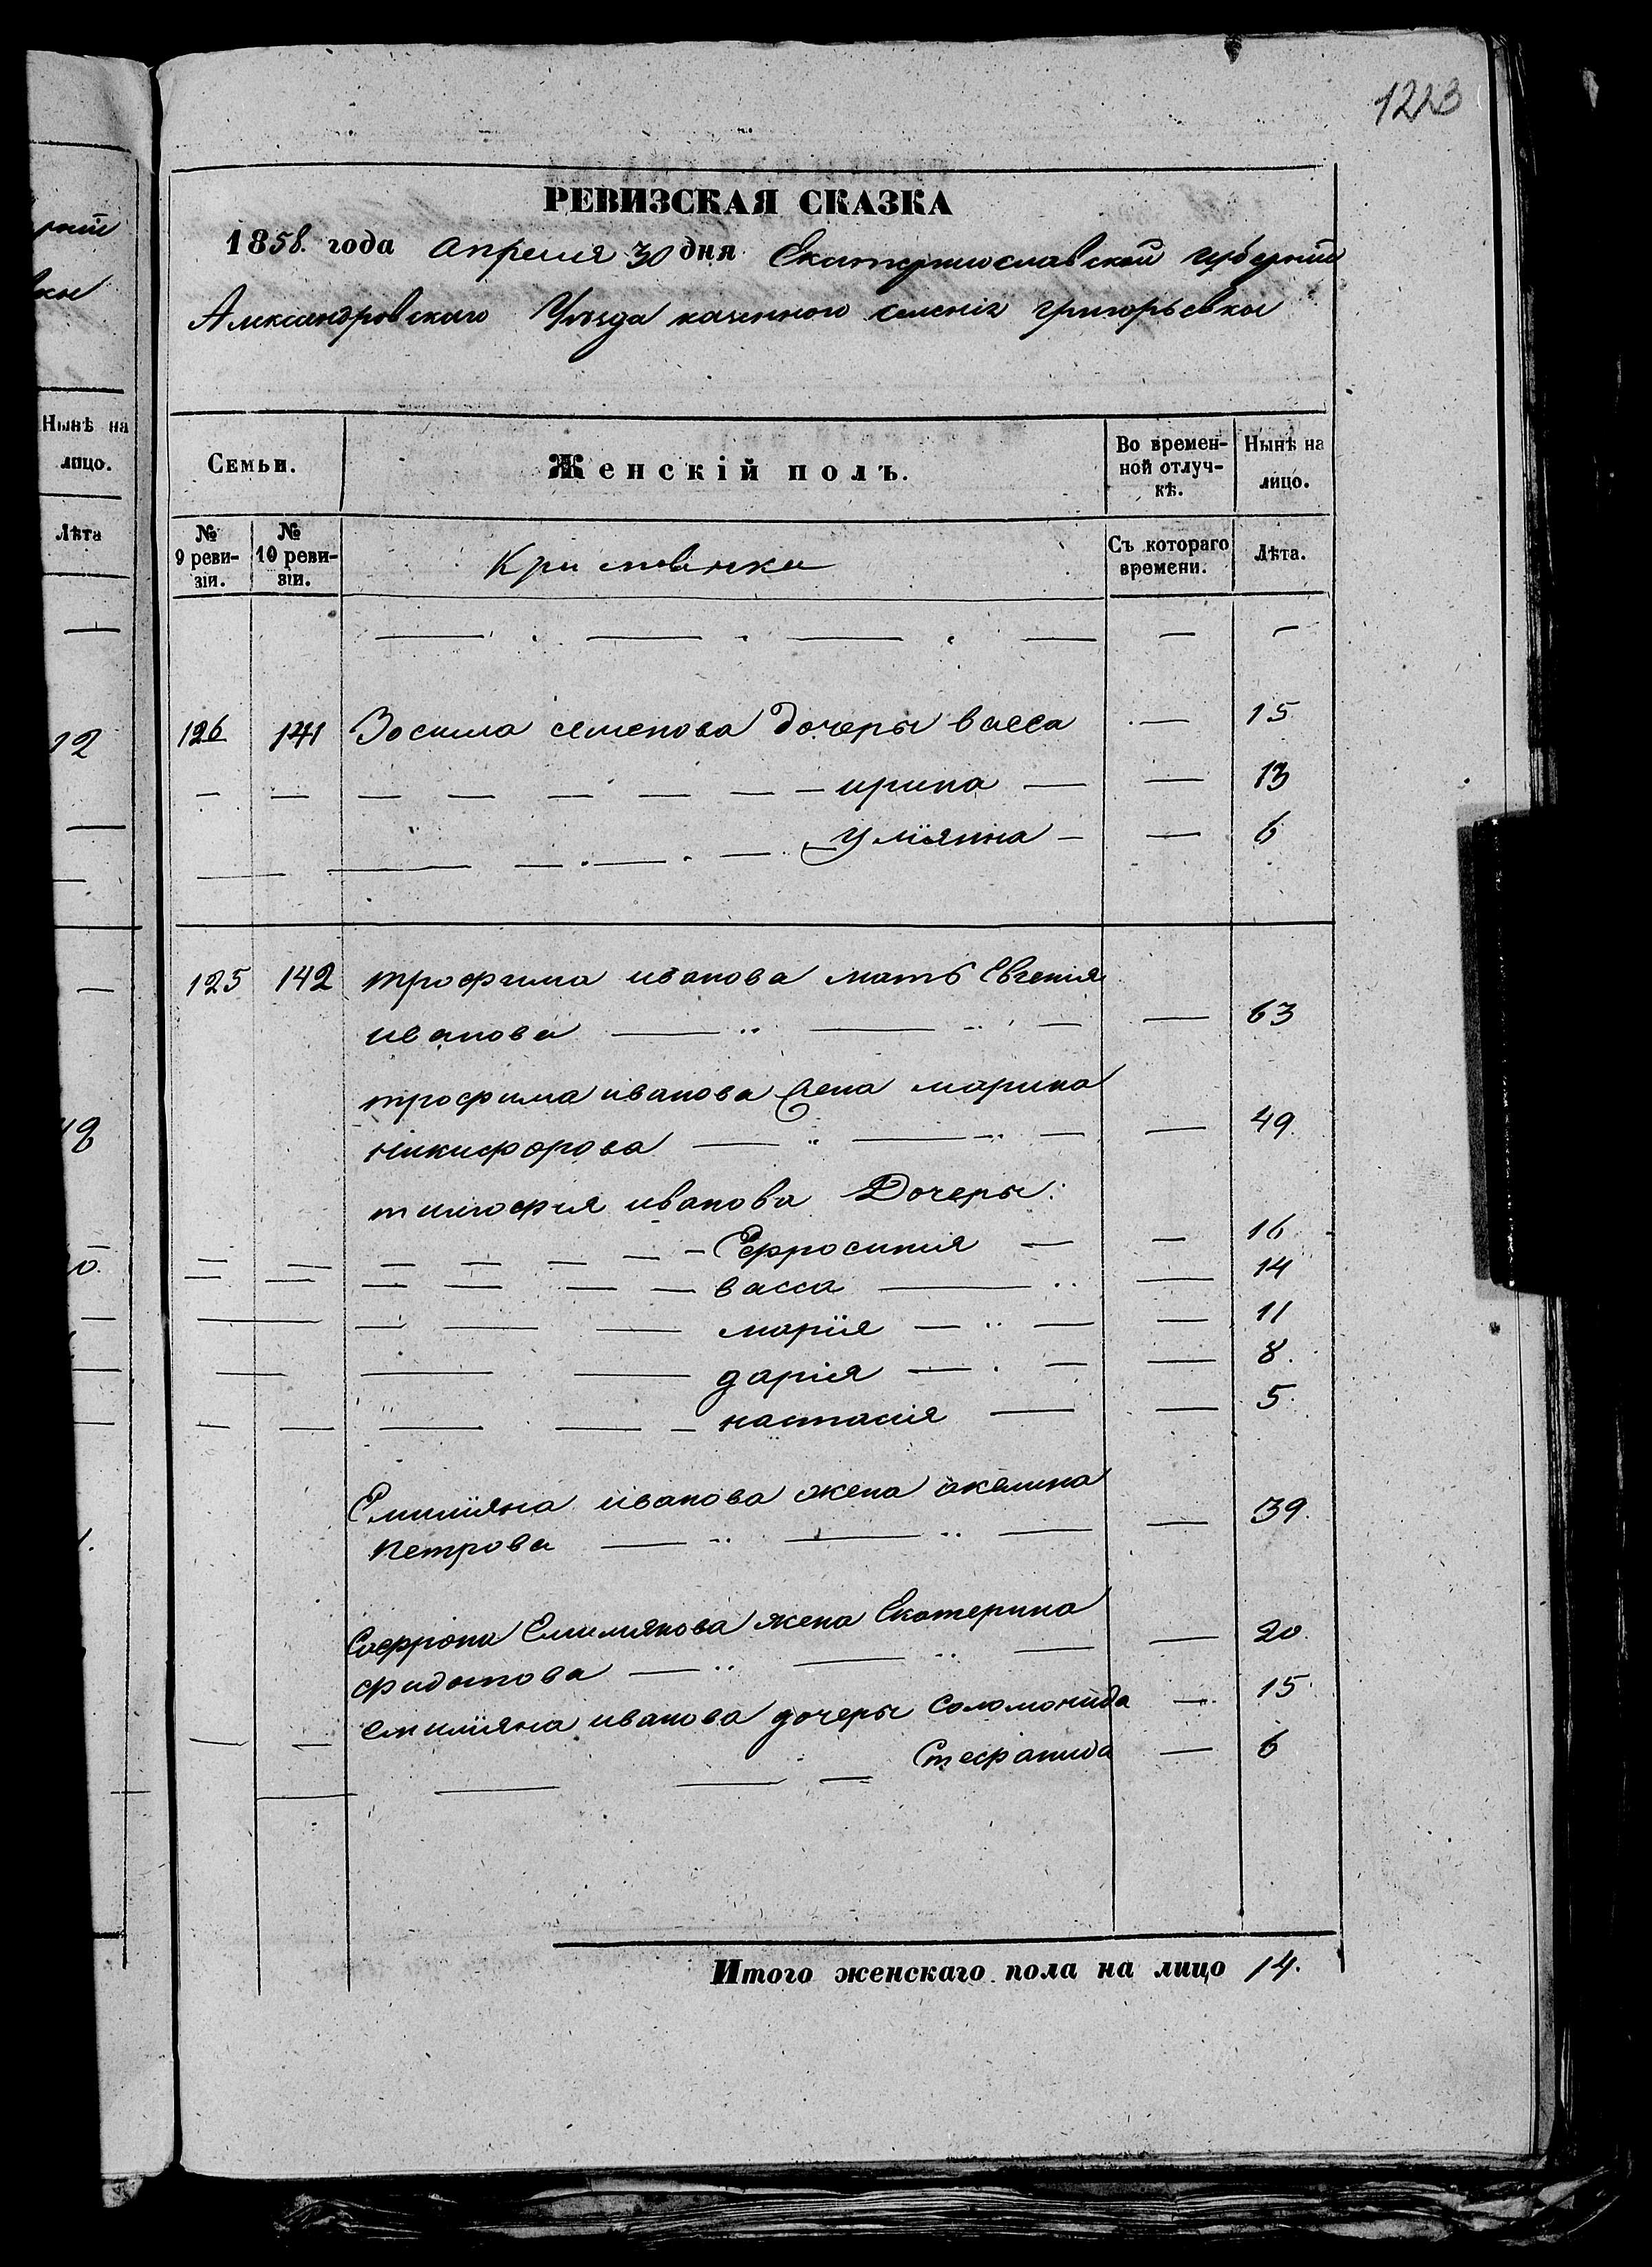 1223
РЕВИЗСКАЯ СКАЗКА
1858. года апреля 30 дня Екатеринославской губерніи
Александровскаго Уѣзда казенного селенія григорьевки
Нынѣ на
лицо.
Лѣта
12
Семьи.
Женскій полъ.
Во времен-
ной отлуч-
кѣ.
Нынѣ на
лицо.
№
9 реви-
зіи.
№
10 реви-
зіи.
Съ котораго
времени.
Лѣта.
126 141 Зосима семенова дочеры васса — 15
— — — — — — — — ирина — — 13
— — — — — улїянна — — 6
125 142 трофима иванова мать Евгенія
иванова — „ — „ — — 63
трофима иванова жена марина
никифорова — „ — „ — — 49.
тимофея иванова Дочеры:
— — — — — — — Ефросинія — — 16
— — — — — — васса — „ — 14
— — — — марїя — „ — — 11
— — — дарія — . — — 8.
— — — — — настасія — — 5.
Емилїяна иванова жена акелина
петрова — „ — „ — — 39.
Софрона Емилиянова жена Екатерина
федотова — „ — „ — — 20.
— — емилїяна иванова дочеры Соломонида — 15.
— — — — Стефанида — 6
Итого женскаго пола на лицо 14.